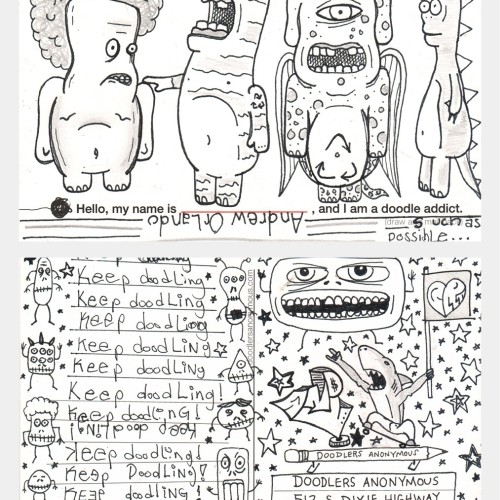 Hello, my name is Andrew Orlando, and I am a doodle addict.
(draw as much as
possible...
Keep doodling
Keep doodling
Keep doodling
Keep doodling
Keep doodling
Keep doodling
Keep doodling!
Keep doodling!
Keep doodling!
Keep doodling!
Keep Doodling!
Keep doodling!
doodlersanonymous.com
DOODLERS ANONYMOUS
DOODLERS ANONYMOUS
512 S DIXIE HIGHWAY